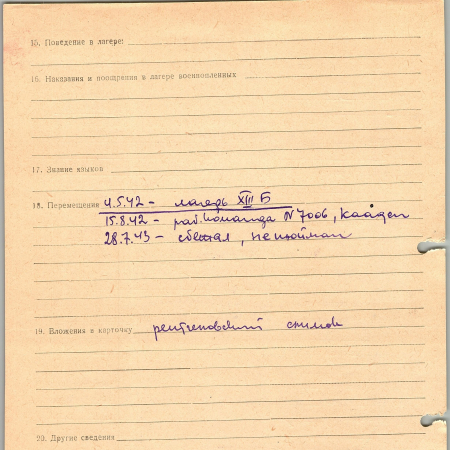 15. Поведение в лагере:
16. Наказания и поощрения в лагере военнопленных
17. Знание языков
18. Перемещения 4.5.42 - лагерь XIII Б
15.8.42 - раб. команда N 7006, Кааден
28.7.43 - сбежал, не пойман
19. Вложения в карточку рентгеновский снимок
20. Другие сведения